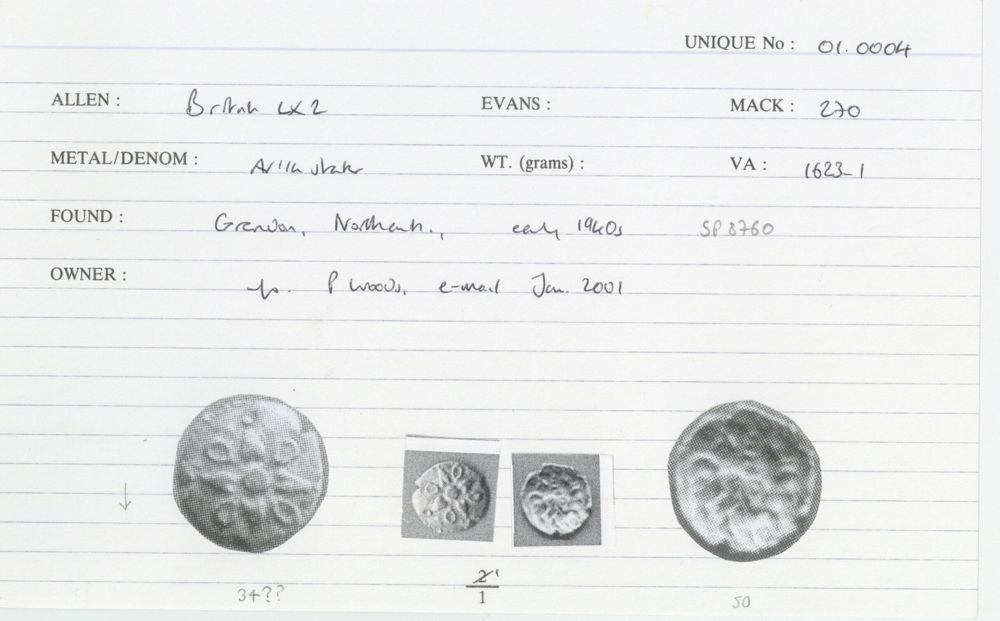 UNIQUE No : 01.0004
ALLEN : British LX2 EVANS : MACK : 270
METAL/DENOM : stater WT. (grams) : VA : 1623-1
FOUND : Grendon, Northants., early 1940s SP 8760
OWNER : P Woods, e-mail Jan. 2001
↓
34?? 1 50